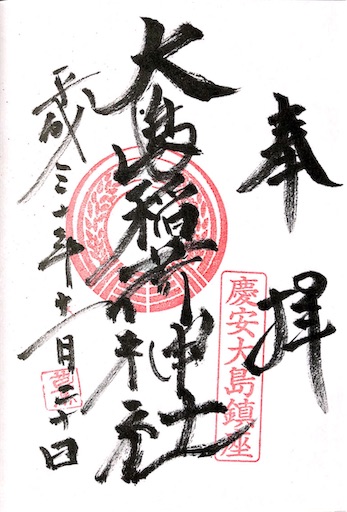 奉拝
慶安大島鎮座
大島稲荷神社
平成三十年十一月二十日